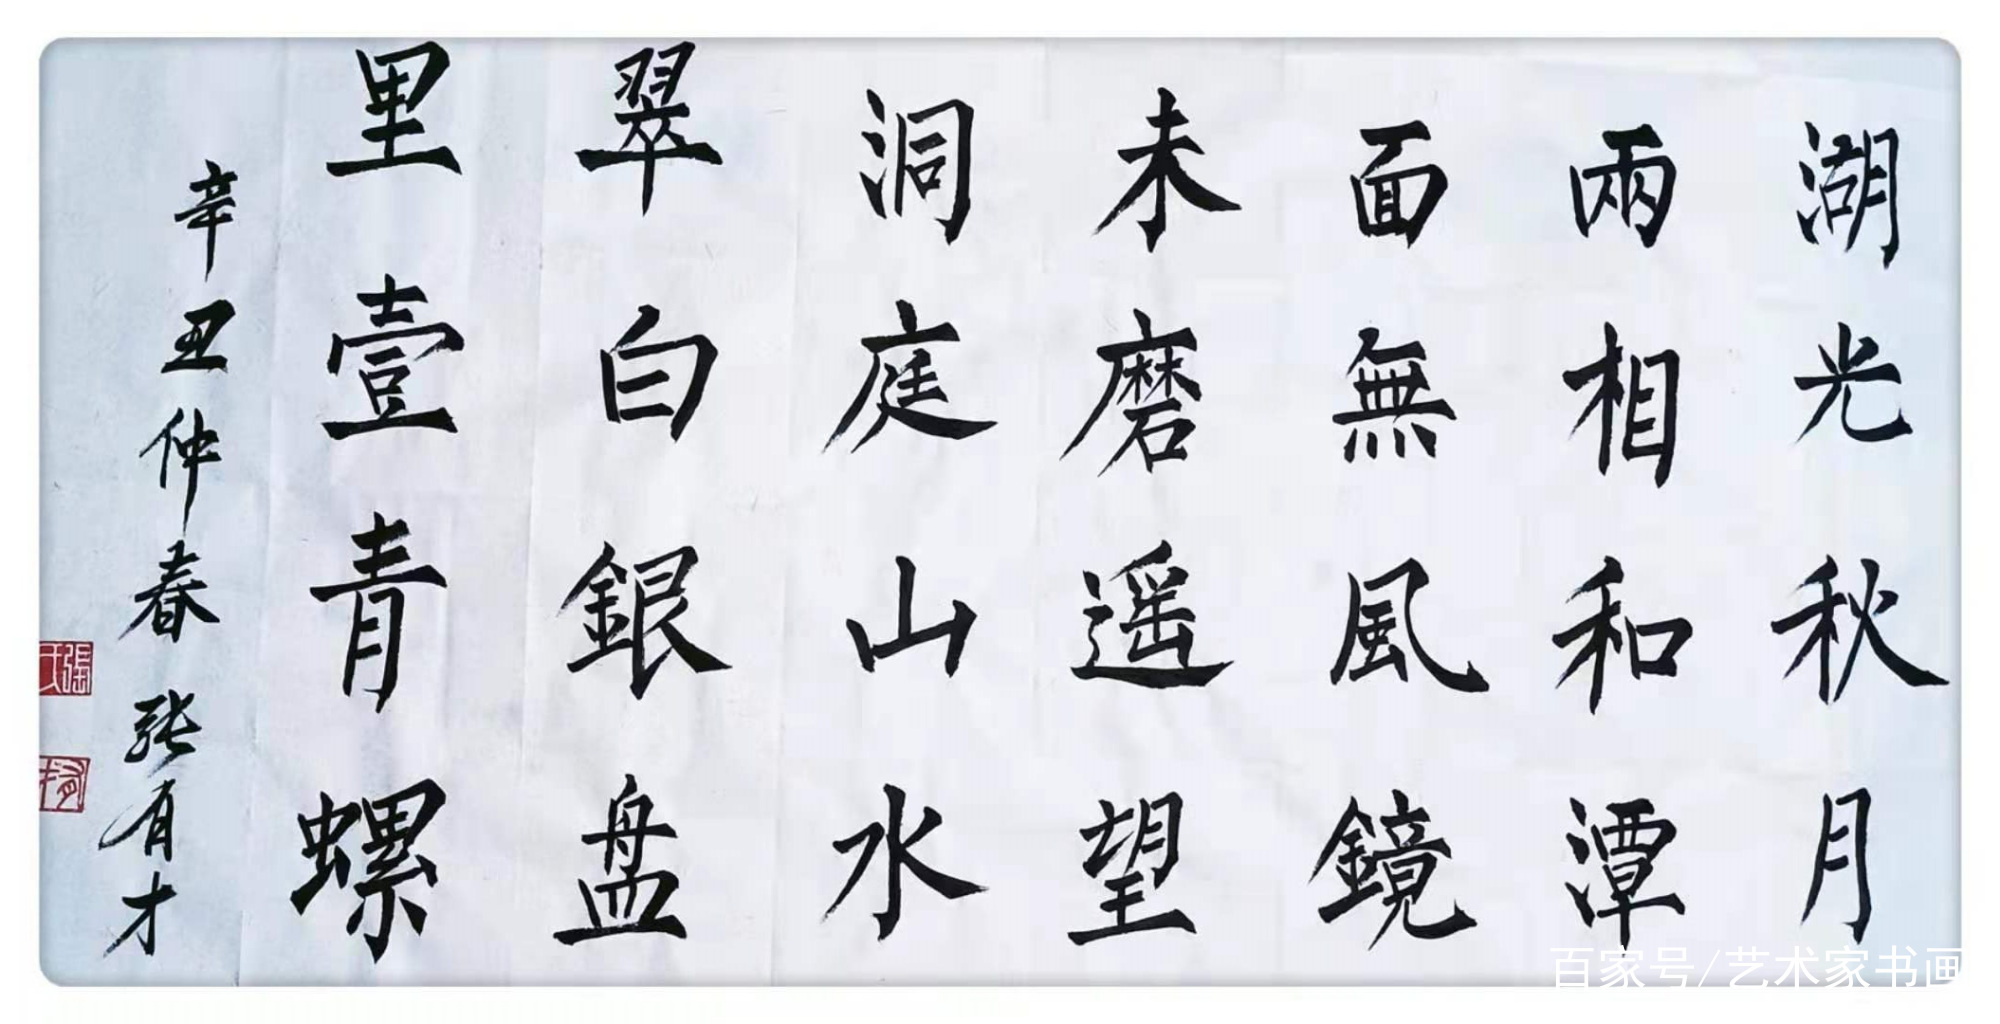 湖光秋月
兩相和潭
面無風鏡
未磨遥望
洞庭山水
翠白銀盘
里壹青螺
辛丑仲春 张有才
百家号/艺术家书画